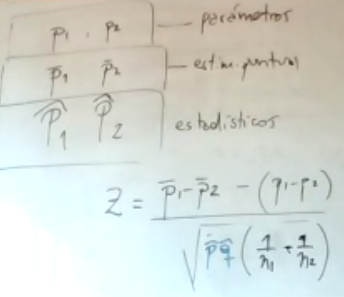 p₁ , p₂ — parámetros
p̄₁ p̄₂ — estim. puntual
P̂₁ P̂₂ estadísticos
Z = (p̄₁ - p̄₂ - (p₁ - p₂)) / √(p̄q̄ (1/n₁ + 1/n₂))